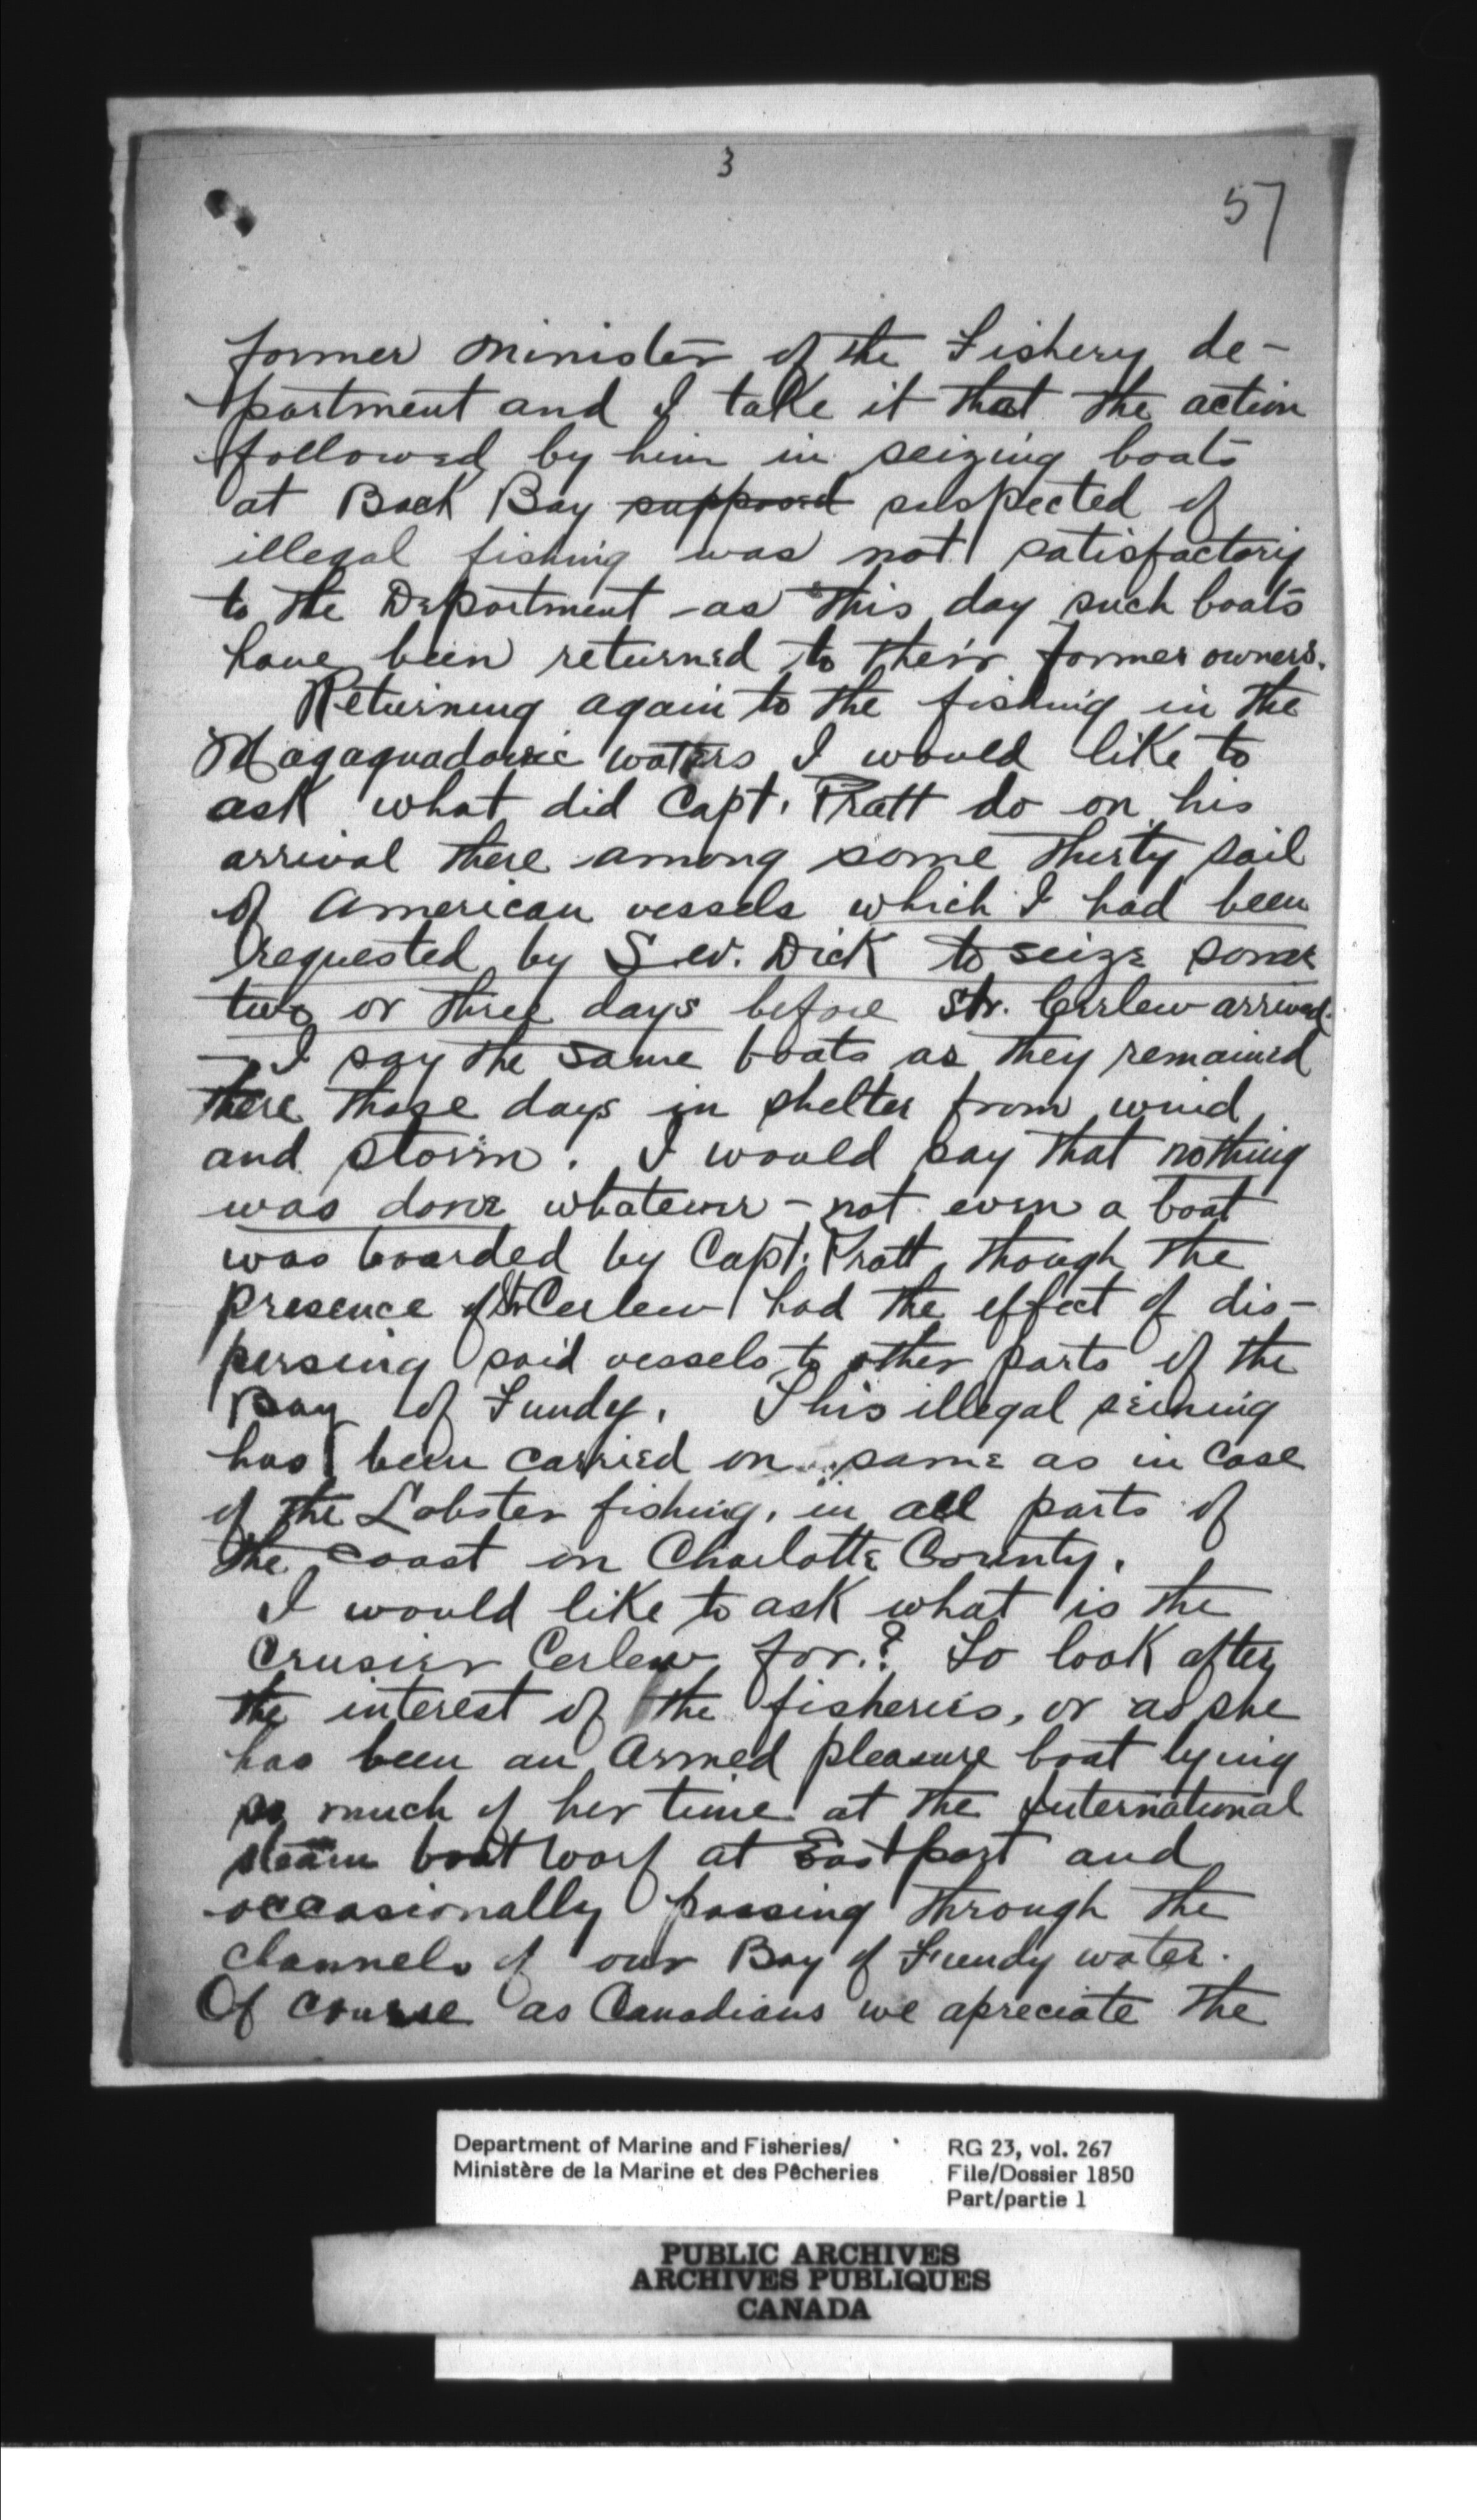 3
57
former minister of the Fishery de-
partment and I take it that the action
followed by him in seizing boats
at Back Bay supposed suspected of
illegal fishing was not satisfactory
to the Department - as this day such boats
have been returned to their former owners.
Returning again to the fishing in the
Magaguadavic waters I would like to
ask what did Capt. Pratt do on his
arrival there among some thirty sail
of American vessels which I had been
requested by S.W. Dick to seize some
two or three days before Str. Curlew arrived.
- I say the same boats as they remained
there those days in shelter from wind
and storm. I would say that nothing
was done whatever - not even a boat
was boarded by Capt. Pratt, though the
presence of Str Cerlew had the effect of dis-
persing said vessels to other parts of the
Bay of Fundy. This illegal seining
has been carried on same as in case
of the Lobster fishing, in all parts of
the coast in Charlotte County.
I would like to ask what is the
Crusier Cerlew for.? To look after
the interest of the fisheries, or as she
has been an Armed pleasure boat lying
so much of her time at the International
steam boat worf at Eastport and
occasionally passing through the
channels of our Bay of Fundy water.
Of course as Canadians we apreciate the
Department of Marine and Fisheries/
Ministère de la Marine et des Pêcheries
RG 23, vol. 267
File/Dossier 1850
Part/partie 1
PUBLIC ARCHIVES
ARCHIVES PUBLIQUES
CANADA